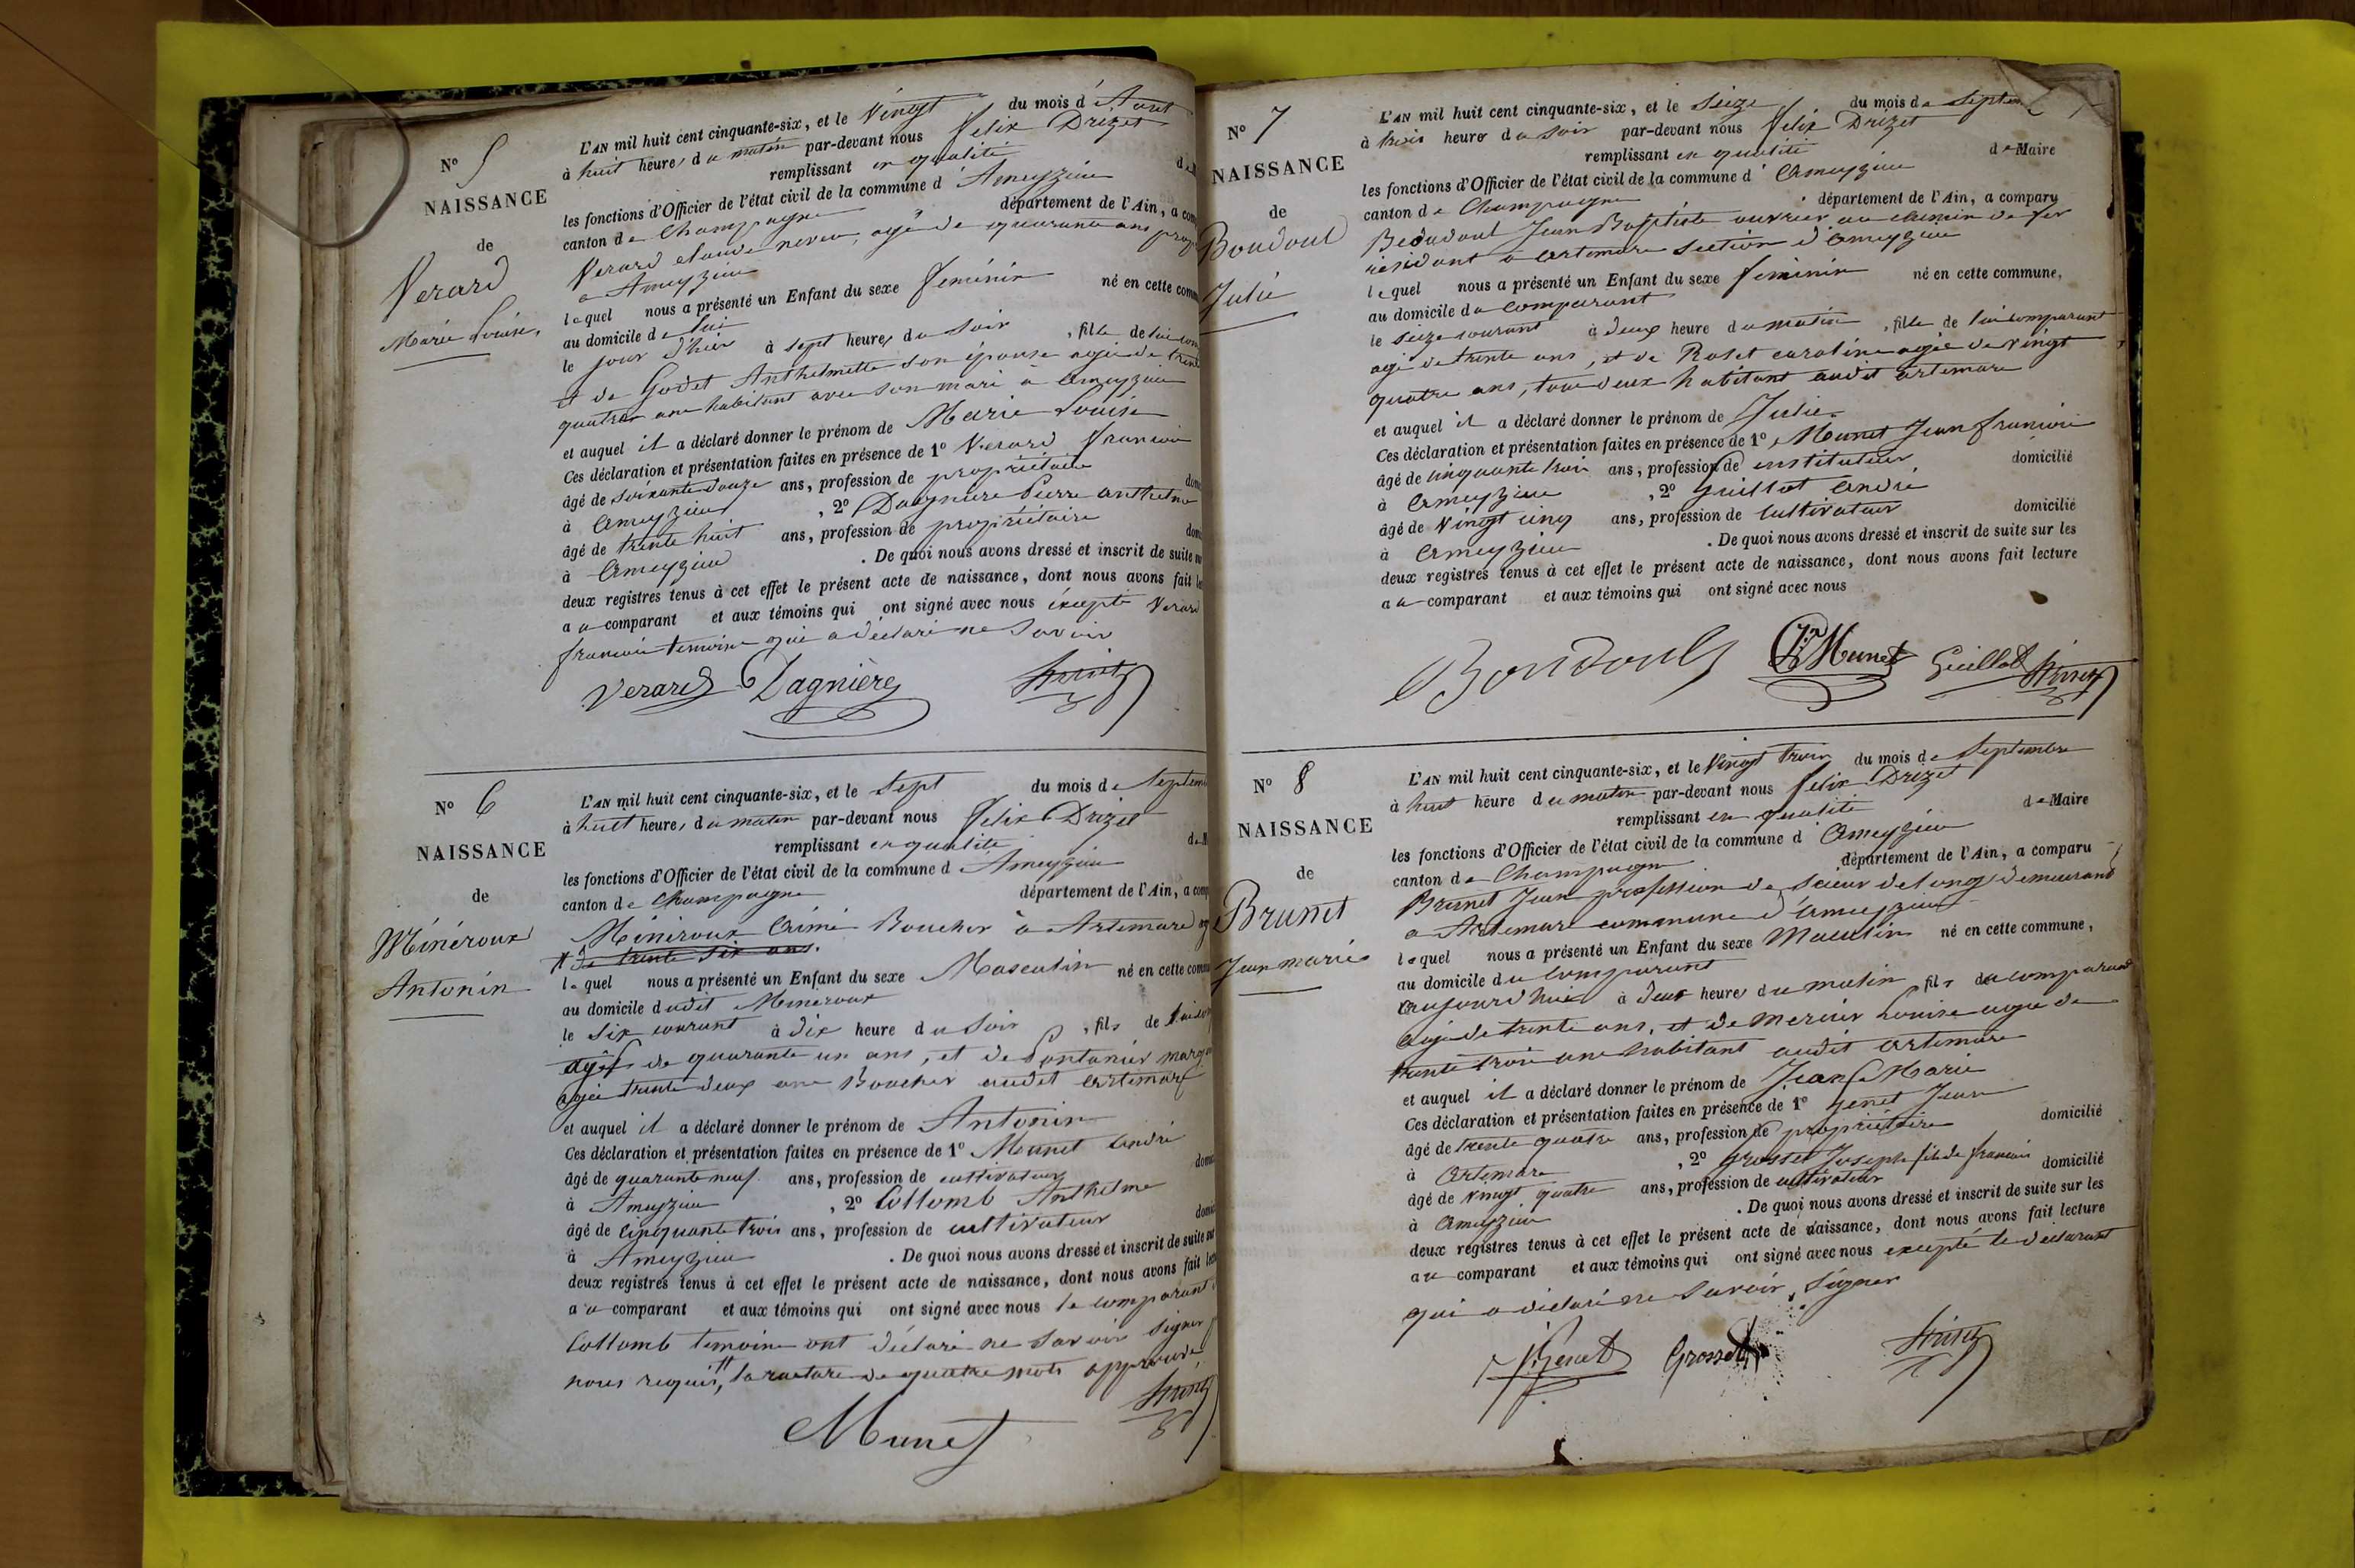 N° 5
NAISSANCE
de
Verard
Marie Louise
L'AN mil huit cent cinquante-six, et le Vingt du mois d'Aout
à huit heures du matin par-devant nous Felix Drizet
remplissant en qualité de
les fonctions d'Officier de l'état civil de la commune d'Ameyzieu
canton de Champagne département de l'Ain, a com
Verard claude neveu, agé de quarante ans prop
a Ameyzieu
lequel nous a présenté un Enfant du sexe feminin né en cette comm
au domicile de lui
le jour d'hier à sept heures du soir, fille de lui com
et de Godet Anthelmette son épouse agée de trente
quatre ans habitant avec son mari à ameyzieu
et auquel il a déclaré donner le prénom de Marie Louise
Ces déclaration et présentation faites en présence de 1° Verard francois
âgé de soixante douze ans, profession de propriétaire dom
à ameyzieu, 2° Dagniere Pierre anthelme
âgé de trente huit ans, profession de propriétaire dom
à ameyzieu. De quoi nous avons dressé et inscrit de suite sur
deux registres tenus à cet effet le présent acte de naissance, dont nous avons fait le
au comparant et aux témoins qui ont signé avec nous éxcepté Verard
francois temoin qui a déclaré ne Savoir
Verard Dagnière Drizet
N° 6
NAISSANCE
de
Minéroux
Antonin
L'AN mil huit cent cinquante-six, et le Sept du mois de Septem
à huit heures du matin par-devant nous Felix Drizet
remplissant en qualité de
les fonctions d'Officier de l'état civil de la commune d Ameyzieu
canton de Champagne département de l'Ain, a comp
Minéroux Boucher à Artemare ag
de trente six ans.
lequel nous a présenté un Enfant du sexe Masculin né en cette comm
au domicile dudit Mineroux
le six courant à dix heure du Soir, fils de lui
agé de quarante un ans, et de Pontanier marg
agée trente deux ans Boucher audit artemare
et auquel il a déclaré donner le prénom de Antonin
Ces déclaration et présentation faites en présence de 1° Munet andré
âgé de quarante neuf ans, profession de cultivateur domi
à Ameyzieu, 2° Collomb Anthelme
âgé de Cinquante trois ans, profession de cultivateur domi
à Ameyzieu. De quoi nous avons dressé et inscrit de suite sur
deux registres tenus à cet effet le présent acte de naissance, dont nous avons fait lect
au comparant et aux témoins qui ont signé avec nous le comparant
Collomb temoins ont déclaré ne savoir signer
nous requis, la rature de quatre mots approuvée
Munet Drizet
N° 7
NAISSANCE
de
Boudoul
Julie
L'AN mil huit cent cinquante-six, et le Seize du mois de Septem
à trois heure du soir par-devant nous Felix Drizet
remplissant en qualité de Maire
les fonctions d'Officier de l'état civil de la commune d'ameyzieu
canton de Champagne département de l'Ain, a comparu
Boudoul Jean Baptiste ouvrier au chemin de fer
résidant a artemare section d'ameyzieu
lequel nous a présenté un Enfant du sexe feminin né en cette commune,
au domicile du comparant
le seize courant à deux heure du matin, fille de lui comparant
agé de trente ans, et de Roset caroline agée de Vingt
quatre ans, tous deux habitant audit artemare
et auquel il a déclaré donner le prénom de Julie
Ces déclaration et présentation faites en présence de 1° Munet Jean francois
âgé de cinquante trois ans, profession de instituteur domicilié
à ameyzieu, 2° guillot andré
âgé de Vingt cinq ans, profession de cultivateur domicilié
à ameyzieu. De quoi nous avons dressé et inscrit de suite sur les
deux registres tenus à cet effet le présent acte de naissance, dont nous avons fait lecture
au comparant et aux témoins qui ont signé avec nous
Boudoul Munet Guillot Drizet
N° 8
NAISSANCE
de
Brunet
Jean marie
L'AN mil huit cent cinquante-six, et le Vingt trois du mois de Septembre
à huit heure du matin par-devant nous Felix Drizet
remplissant en qualité de Maire
les fonctions d'Officier de l'état civil de la commune d'ameyzieu
canton de Champagne département de l'Ain, a comparu
Brunet Jean profession de scieur de long demeurand
a Artemare commune d'ameyzieu
lequel nous a présenté un Enfant du sexe Masculin né en cette commune,
au domicile du comparant
aujourd'hui à deux heures du matin, fils du comparand
agé de trente ans, et de Mercier Louise agée de
trente trois ans habitant audit artemare
et auquel il a déclaré donner le prénom de Jean Marie
Ces déclaration et présentation faites en présence de 1° genet Jean
âgé de trente quatre ans, profession de propriétaire domicilié
à artemare, 2° grosset Joseph fils de francois
âgé de vingt quatre ans, profession de cultivateur domicilié
à ameyzieu. De quoi nous avons dressé et inscrit de suite sur les
deux registres tenus à cet effet le présent acte de naissance, dont nous avons fait lecture
au comparant et aux témoins qui ont signé avec nous excepté le declarant
qui a déclaré ne savoir signer
Genet Grosset Drizet